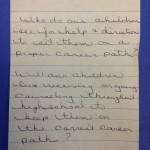 Who do our children
see for help & direction
to set them on a
proper career path?
Will our children
be receiving ongoing
counseling throughout
highschool to
keep them on
the correct career
path?